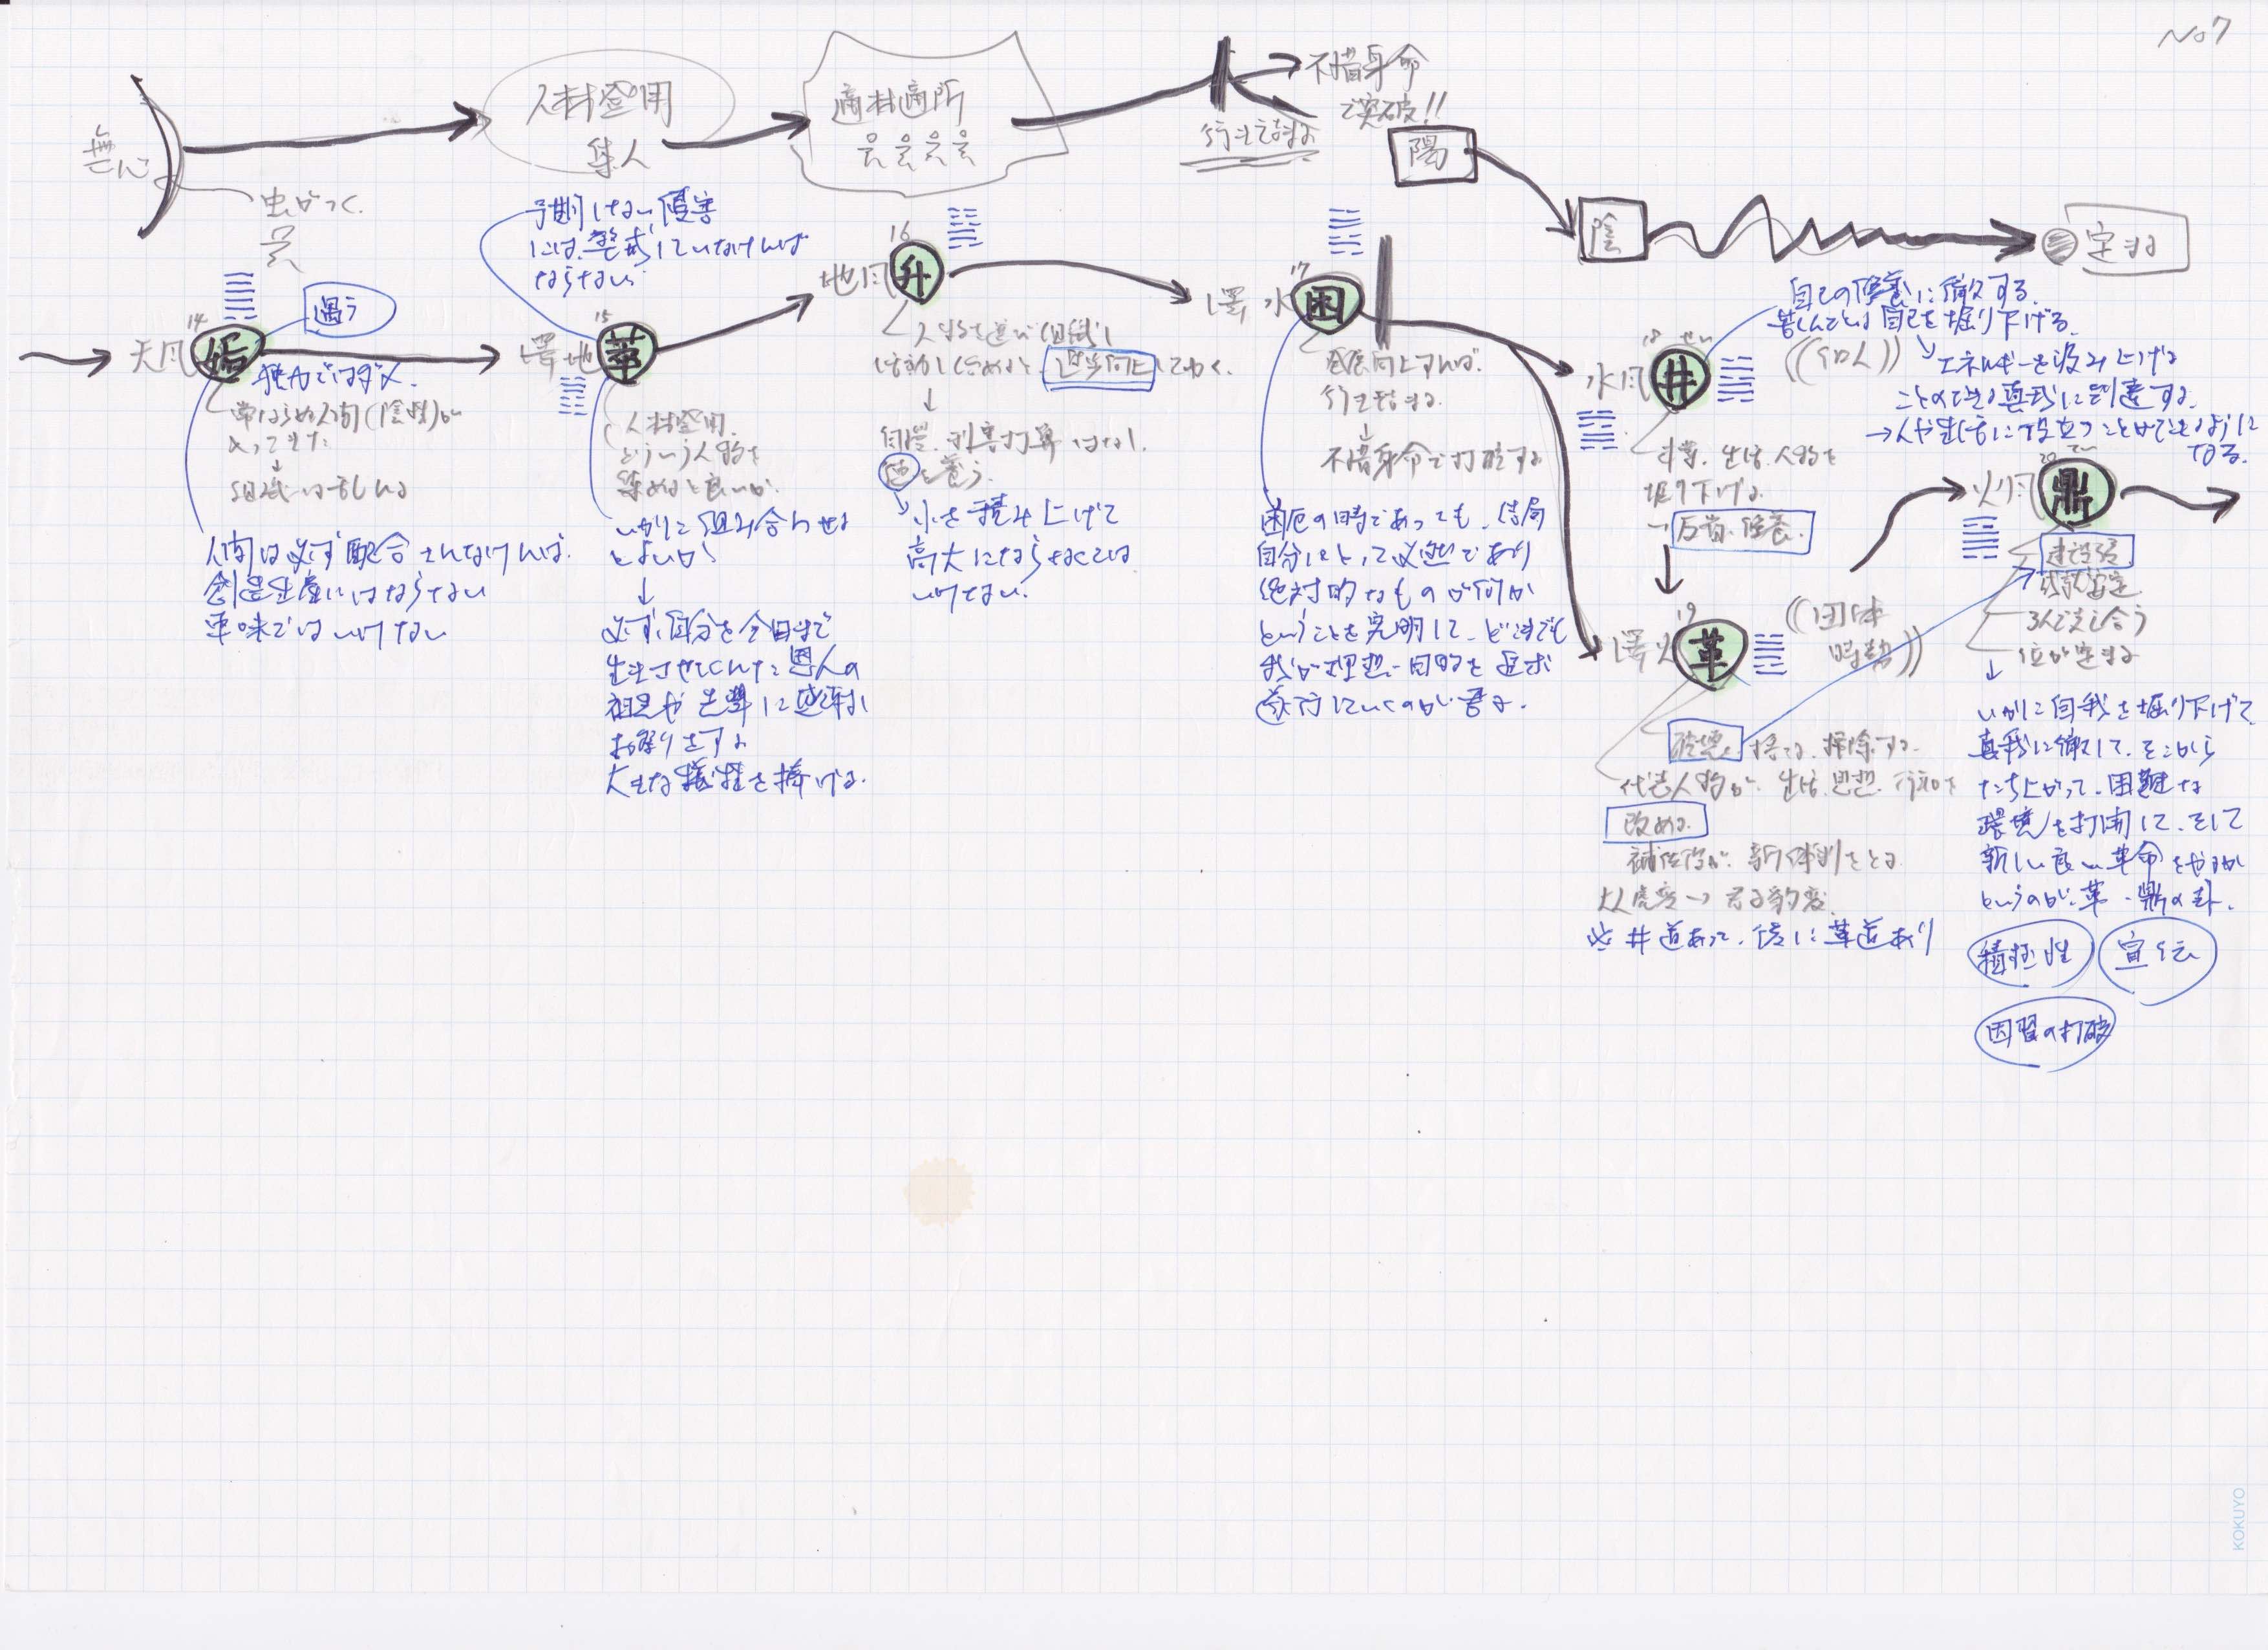 No7
無
虫がつく
人材登用
集人
適材適所
行き詰まる
不惜身命
で突破!!
陽
陰
定まる
14
天風
姤
遇う
独力ではダメ
常ならぬ人間(陰性)が
やってきた
↓
組織は乱れる
人間は必ず配合されなければ
創造生産にはならない
単味ではいけない
予期しない侵害
には、警戒していなければ
ならない
15
澤地
萃
人材登用
どういう人物を
集めると良いか
いかに組み合わせる
とよいか
↓
必ず、自分を今日まで
生きさせてくれた恩人の
祖先や先輩に感謝し
お祭りをする
大きな犠牲を捧げる
16
地風
升
人物を選び組織し
活動し始めると
していく
↓
利害打算はなし
を養う
小を積み上げて
高大にならなくては
いけない
17
澤水
困
向上すれば
行き詰まる
↓
不惜身命で打破する
困厄の時であっても、結局
自分にとって必然であり
絶対的なものが何か
ということを究明して、どこまでも
我が理想・目的を追求
遂行していくのが
18 せい
水風
井
((個人))
自己の修養に徹する
苦しんでは自己を掘り下げる
エネルギーを汲み上げる
ことのできる真我に到達する
→人や生活に役立つことができるように
なる
事業、生活、人物を
掘り下げる
→反省・修養
19
澤火
革
((団体
時勢))
捨てる、掃除する
代表人物が、生活、思想、
改める
補佐役が、新体制をとる
大人虎変→君子豹変
井道あって、後に革道あり
20 てい
火風
鼎
建設
3人で支え合う
位が定まる
↓
いかに自我を掘り下げて
真我に徹して、そこから
たち上がって、困難な
環境を打開して、そして
新しい良い革命をやるか
というのが、革・鼎の卦
積極性
宣伝
因習の打破
KOKUYO